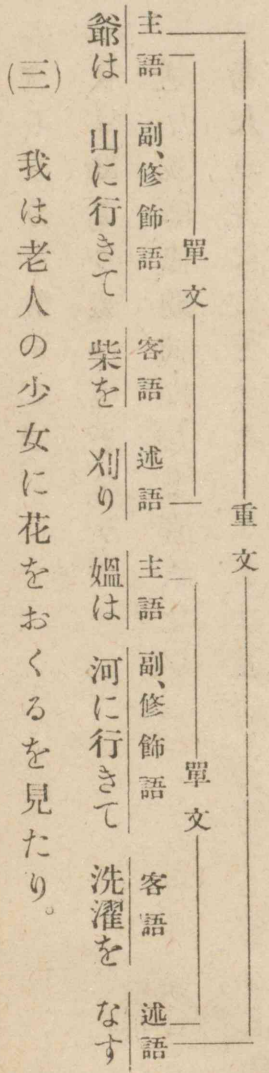 重文
單文 單文
主語 副、修飾語 客語 述語 主語 副、修飾語 客語 述語
爺は 山に行きて 柴を 刈り 媼は 河に行きて 洗濯を なす
(三) 我は老人の少女に花をおくるを見たり。